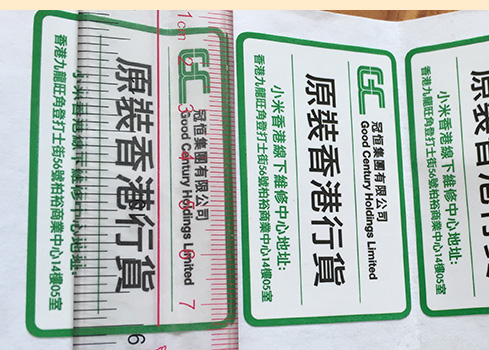 1cm 2 3 4 5 6 7
GC
冠恒集團有限公司
Good Century Holdings Limited
原裝香港行貨
小米香港線下維修中心地址:
香港九龍旺角登打士街56號柏裕商業中心14樓05室
6
GC
冠恒集團有限公司
Good Century Holdings Limited
原裝香港行貨
小米香港線下維修中心地址:
香港九龍旺角登打士街56號柏裕商業中心14樓05室
原裝香港行貨
小米香港線下維修中心地址:
香港九龍旺角登打士街56號柏裕商業中心14樓05室